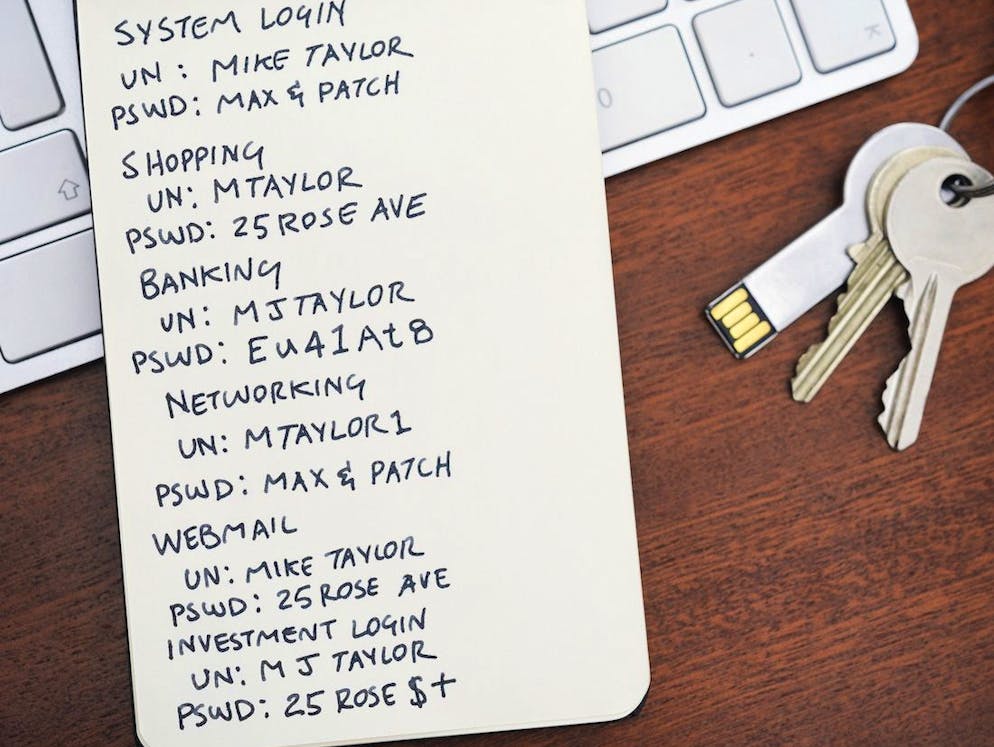 SYSTEM LOGIN
UN: MIKE TAYLOR
PSWD: MAX & PATCH
SHOPPING
UN: MTAYLOR
PSWD: 25 ROSE AVE
BANKING
UN: MJTAYLOR
PSWD: Eu41At8
NETWORKING
UN: MTAYLOR1
PSWD: MAX & PATCH
WEBMAIL
UN: MIKE TAYLOR
PSWD: 25 ROSE AVE
INVESTMENT LOGIN
UN: M J TAYLOR
PSWD: 25 ROSE $+
0